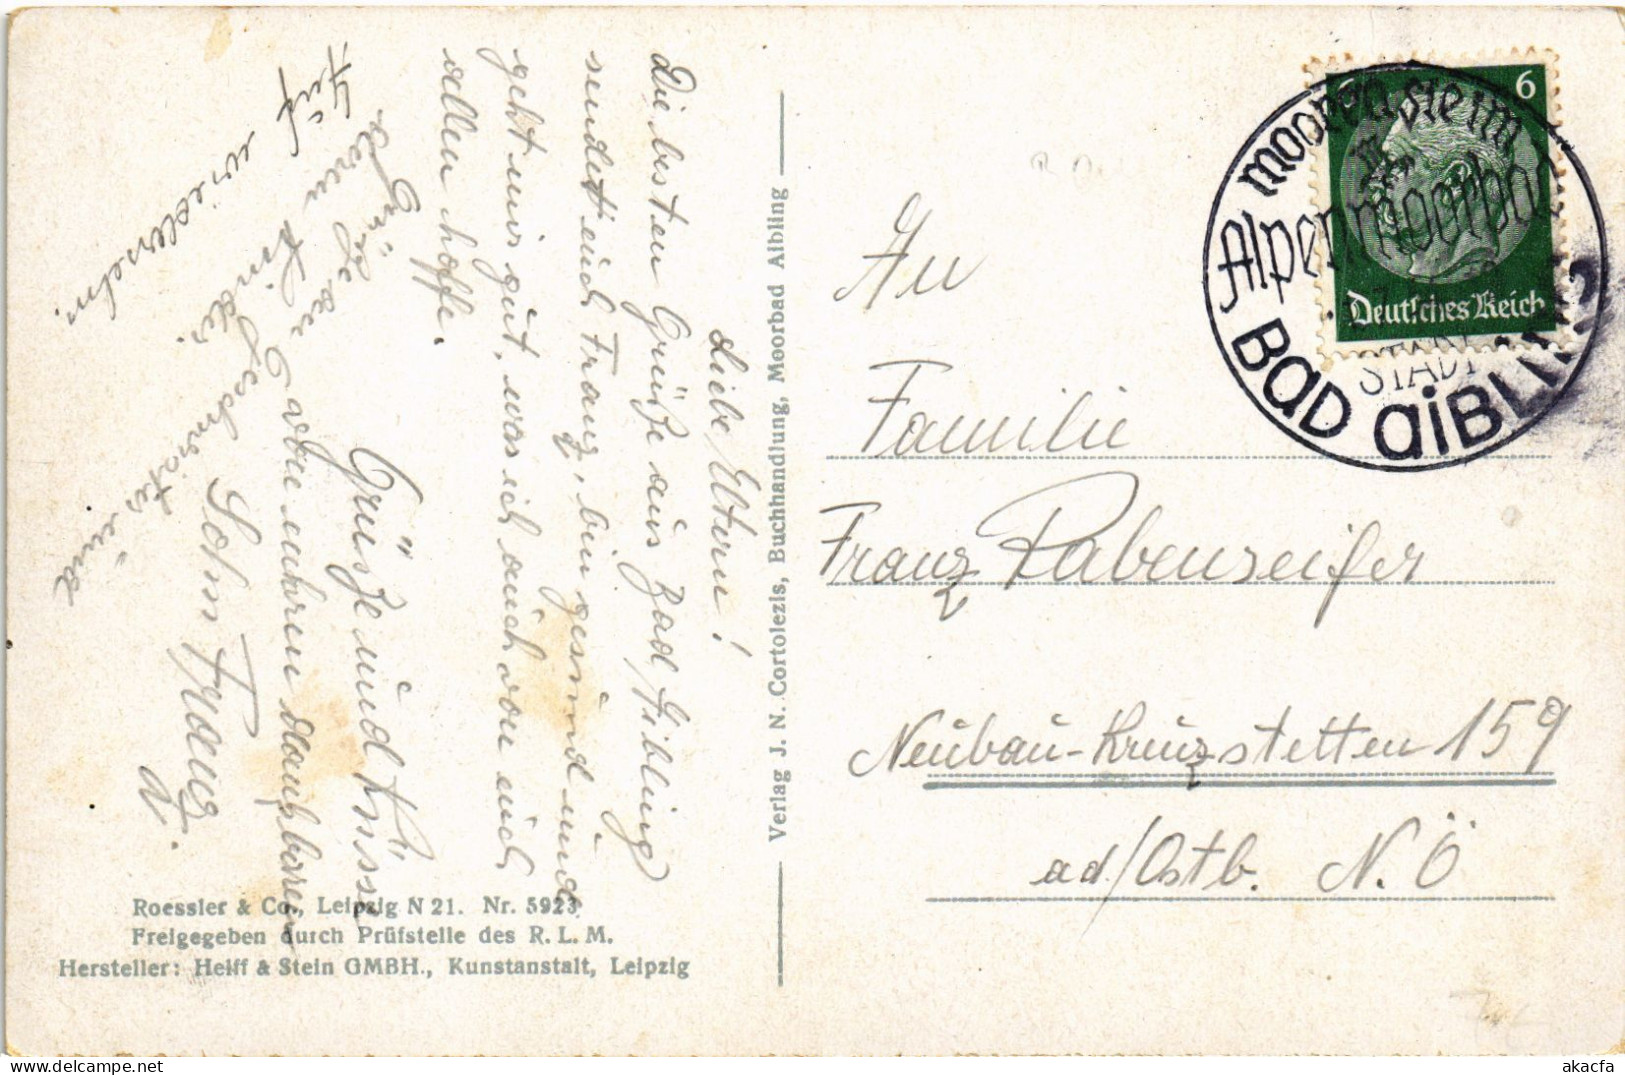 Liebe Eltern!
Die besten Grüße aus Bad Aibling
sendet euch Franz, bin gesund und es
geht mir gut, was ich auch von euch
allen hoffe.
Grüsse und Küsse
von euren dankbaren
Sohn Franz
Grüße an
deren Kinder.
Geschwister und
Auf wiedersehn.
Verlag J. N. Cortolezis, Buchhandlung, Moorbad Aibling
Roessler & Co., Leipzig N 21. Nr. 5923
Freigegeben durch Prüfstelle des R. L. M.
Hersteller: Helff & Stein GMBH., Kunstanstalt, Leipzig
6 6
Deutsches Reich
Alpenmoorbad
STADT
BAD AIBLING
An
Familie
Franz Rabenseifer
Neubau-Kreuzstetten 159
ad/Ostb. N.Ö
akacfa